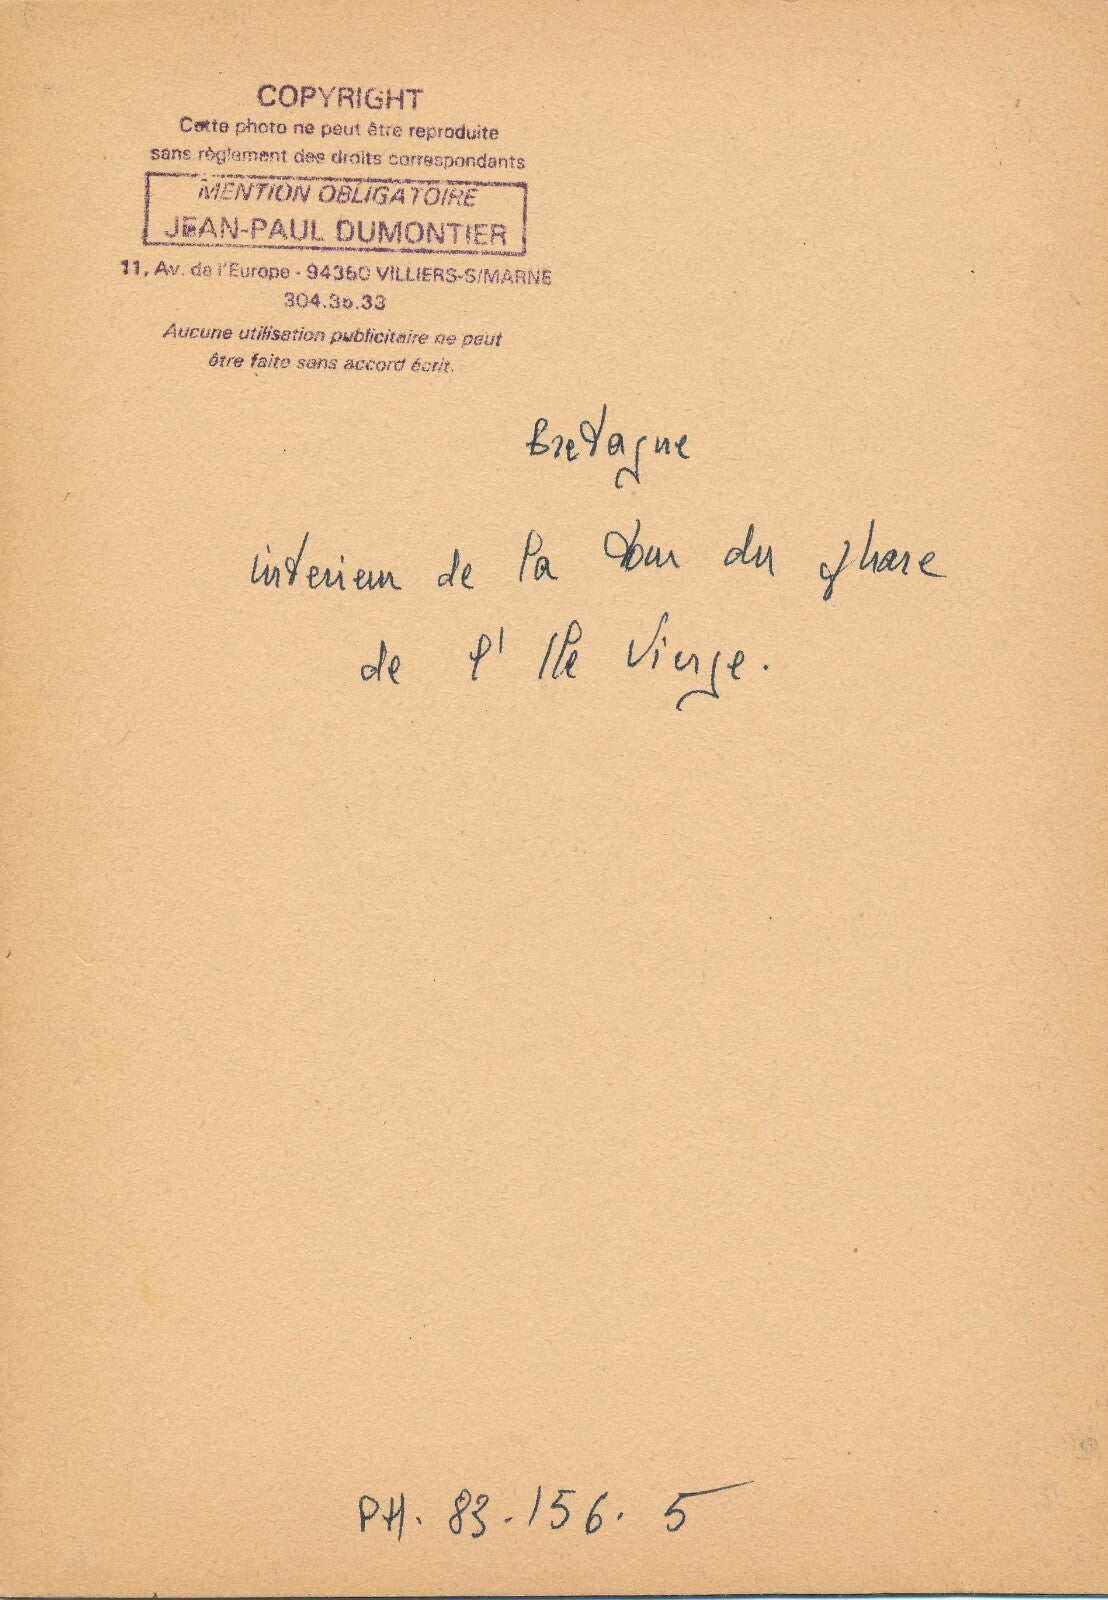 COPYRIGHT
Cette photo ne peut être reproduite
sans règlement des droits correspondants
MENTION OBLIGATOIRE
JEAN-PAUL DUMONTIER
11, Av. de l'Europe - 94350 VILLIERS-S/MARNE
304.35.33
Aucune utilisation publicitaire ne peut
être faite sans accord écrit.
Bretagne
interieur de la tour du phare
de l' Ile Vierge.
PH. 83.156. 5